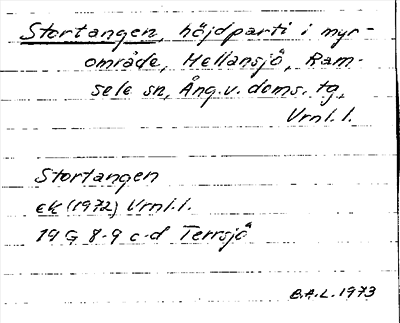 Stortangen, höjdparti i myr-
område, Hellansjö, Ram-
sele sn, Ång.v. doms. tg,
Vrnl.l.
Stortangen
ek (1972) Vrnl.l.
19 G 8-9 c-d Terrsjö
B.A.L. 1973